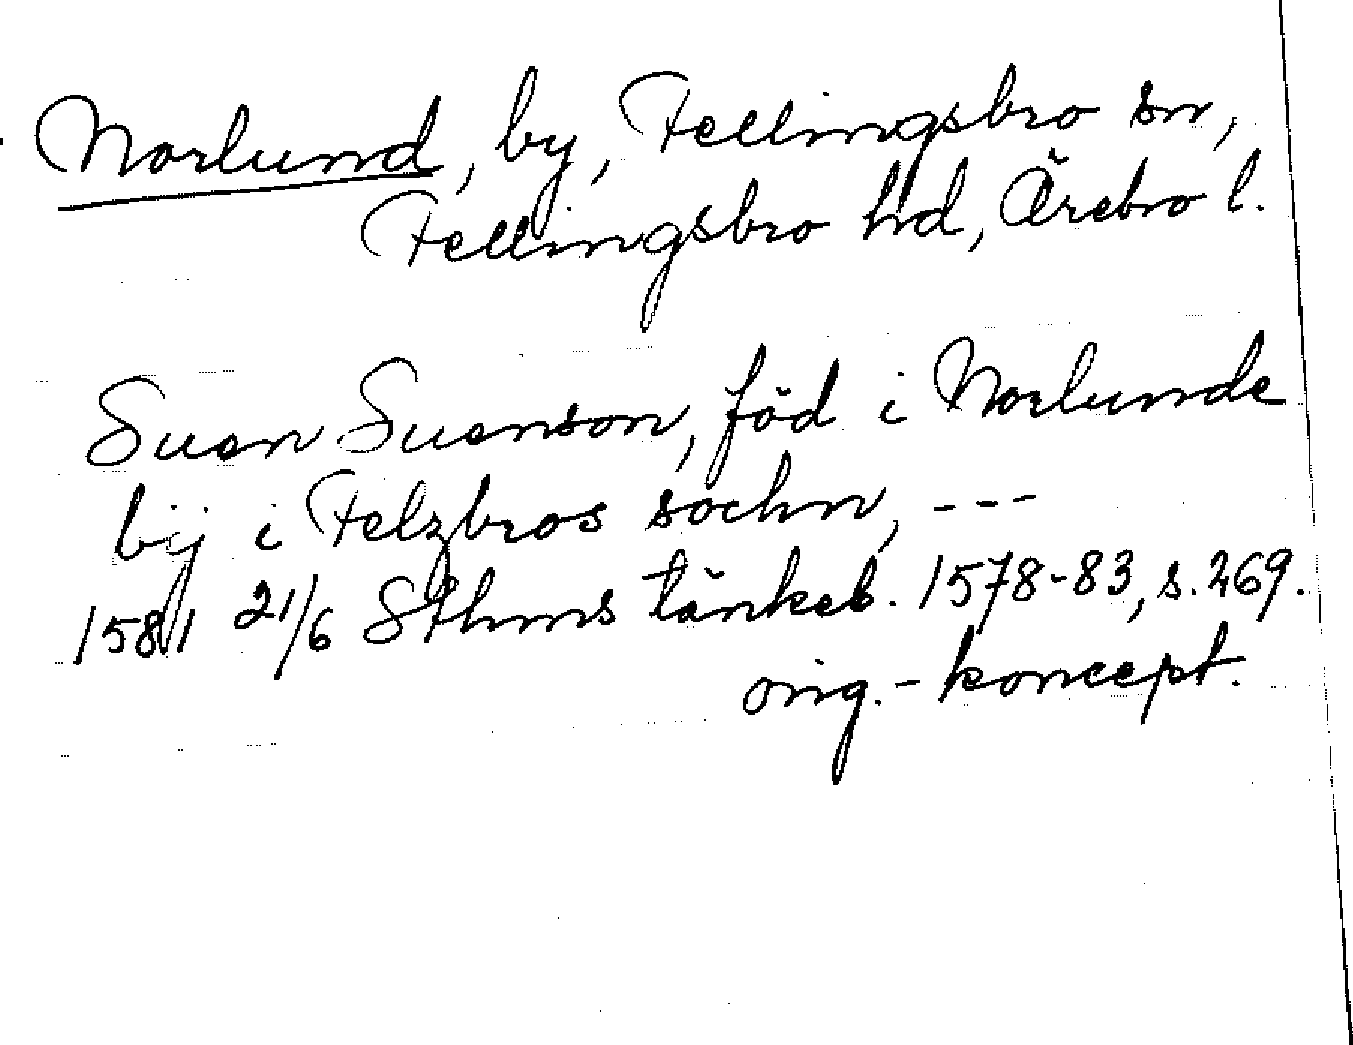 Norlund, by, Fellingsbro sn,
Fellingsbro hd, Örebro l.
Suen Suenson, född i Norlunde
bÿ i Felzbros sochn, ---
1581 21/6 Sthms tänkeb. 1578-83, s. 269.
orig.-koncept.